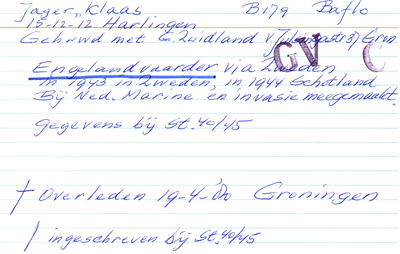 Jager, Klaas B179 Baflo
15-12-12 Harlingen
Gehuwd met E. Zuidland Gron.
Engelandvaarder via Zweden
in 1943 in Zweden, in 1944 Schotland
Bij Ned. Marine en invasie meegemaakt.
GV C
gegevens bij St. 40/45
† Overleden 19-4-'00 Groningen
/ ingeschreven bij St. 40/45